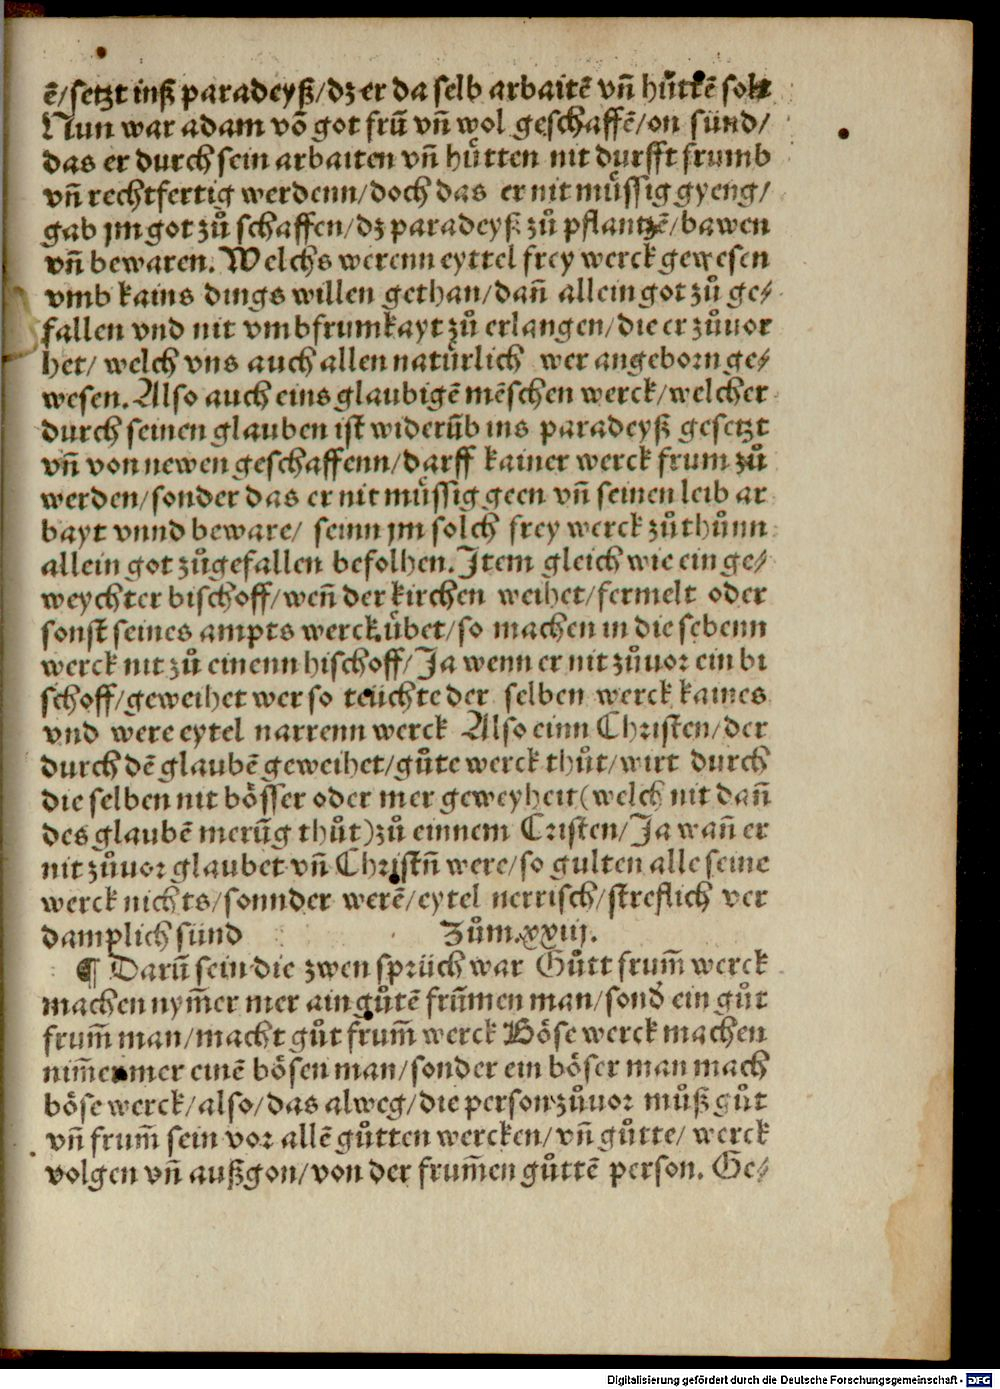 ē/setzt inß paradeyß/dz er da selb arbaitē vn̄ hůttē solt
Nun war adam vō got frū vn̄ wol geschaffē/on sünd/
das er durch sein arbaiten vn̄ hůtten nit durfft frumb
vn̄ rechtfertig werdenn/doch das er nit můssig gyeng/
gab jm got zů schaffen/dz paradeyß zů pflantzē/bawen
vn̄ bewaren. Welchs werenn eyttel frey werck gewesen
vmb kains dings willen gethan/dan̄ allein got zů ge⸗
fallen vnd nit vmb frumkayt zů erlangen/die er zůvor
het/ welch vns auch allen natürlich wer angeborn ge⸗
wesen. Also auch eins glaubigē mēschen werck/welcher
durch seinen glauben ist widerūb ins paradeyß gesetzt
vn̄ von newen geschaffenn/darff kainer werck frum zů
werden/sonder das er nit můssig geen vn̄ seinen leib ar
bayt vnnd beware/ seinn jm solch frey werck zůthůnn
allein got zůgefallen befolhen. Item gleich wie ein ge⸗
weychter bischoff/wen̄ der kirchen weihet/fermelt oder
sonst seines ampts werck übet/so machen in die sebenn
werck nit zů einenn bischoff/Ja wenn er nit zůvor ein bi
schoff/geweihet wer so teüchte der selben werck kaines
vnd were eytel narrenn werck Also einn Christen/der
durch dē glaubē geweihet/gůte werck thůt/wirt durch
die selben nit bösser oder mer geweyheit(welch nit dan̄
des glaubē merūg thůt)zů einnem Cristen/Ja wan̄ er
nit zůvor glaubet vn̄ Christn̄ were/so gulten alle seine
werck nichts/sonnder werē/eytel nerrisch/streflich ver
damplich sünd Zům.xxiij.
¶ Darū sein die zwen sprüch war Gůtt frum̄ werck
machen nym̄er mer ain gůtē frūmen man/sond̄ ein gůt
frum̄ man/macht gůt frum̄ werck Böse werck machen
nim̄ermer einē bösen man/sonder ein böser man mach
böse werck/also/das alweg/die person zůvor můß gůt
vn̄ frum̄ sein vor allē gůtten wercken/vn̄ gůtte/ werck
volgen vn̄ außgon/von der frum̄en gůttē person. Ge⸗
Digitalisierung gefördert durch die Deutsche Forschungsgemeinschaft - DFG